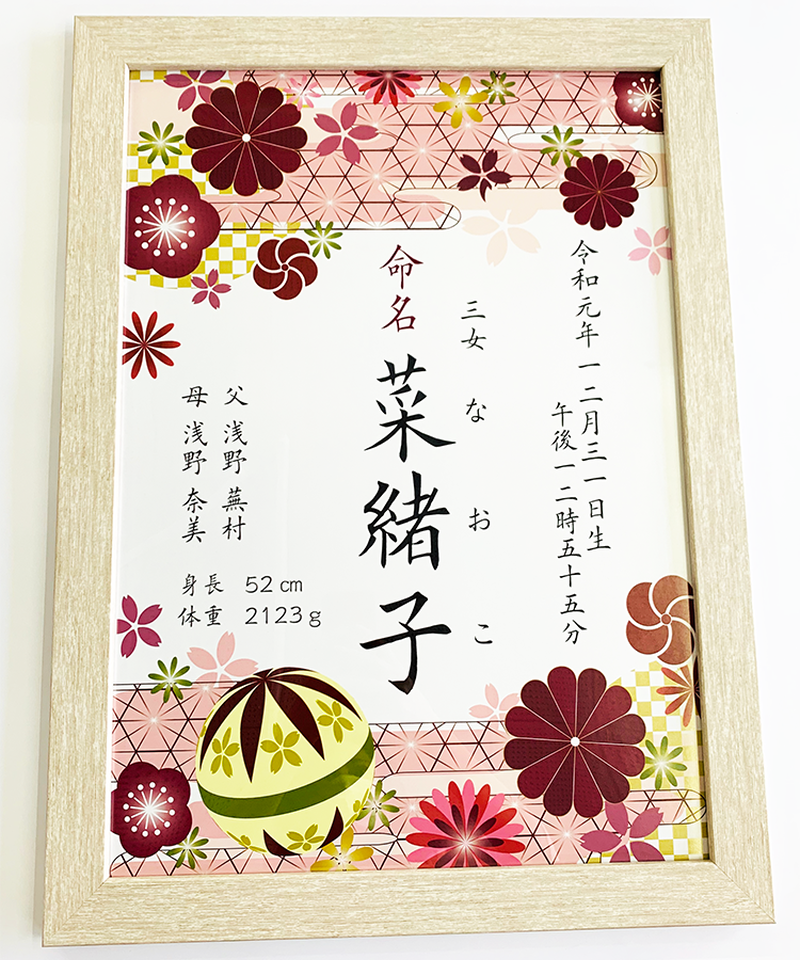 令和元年一二月三一日生
午後一二時五十五分
三女 な お こ
命名 菜緒子
父 浅野 蕪村
母 浅野 奈美
身長 52 cm
体重 2123 g